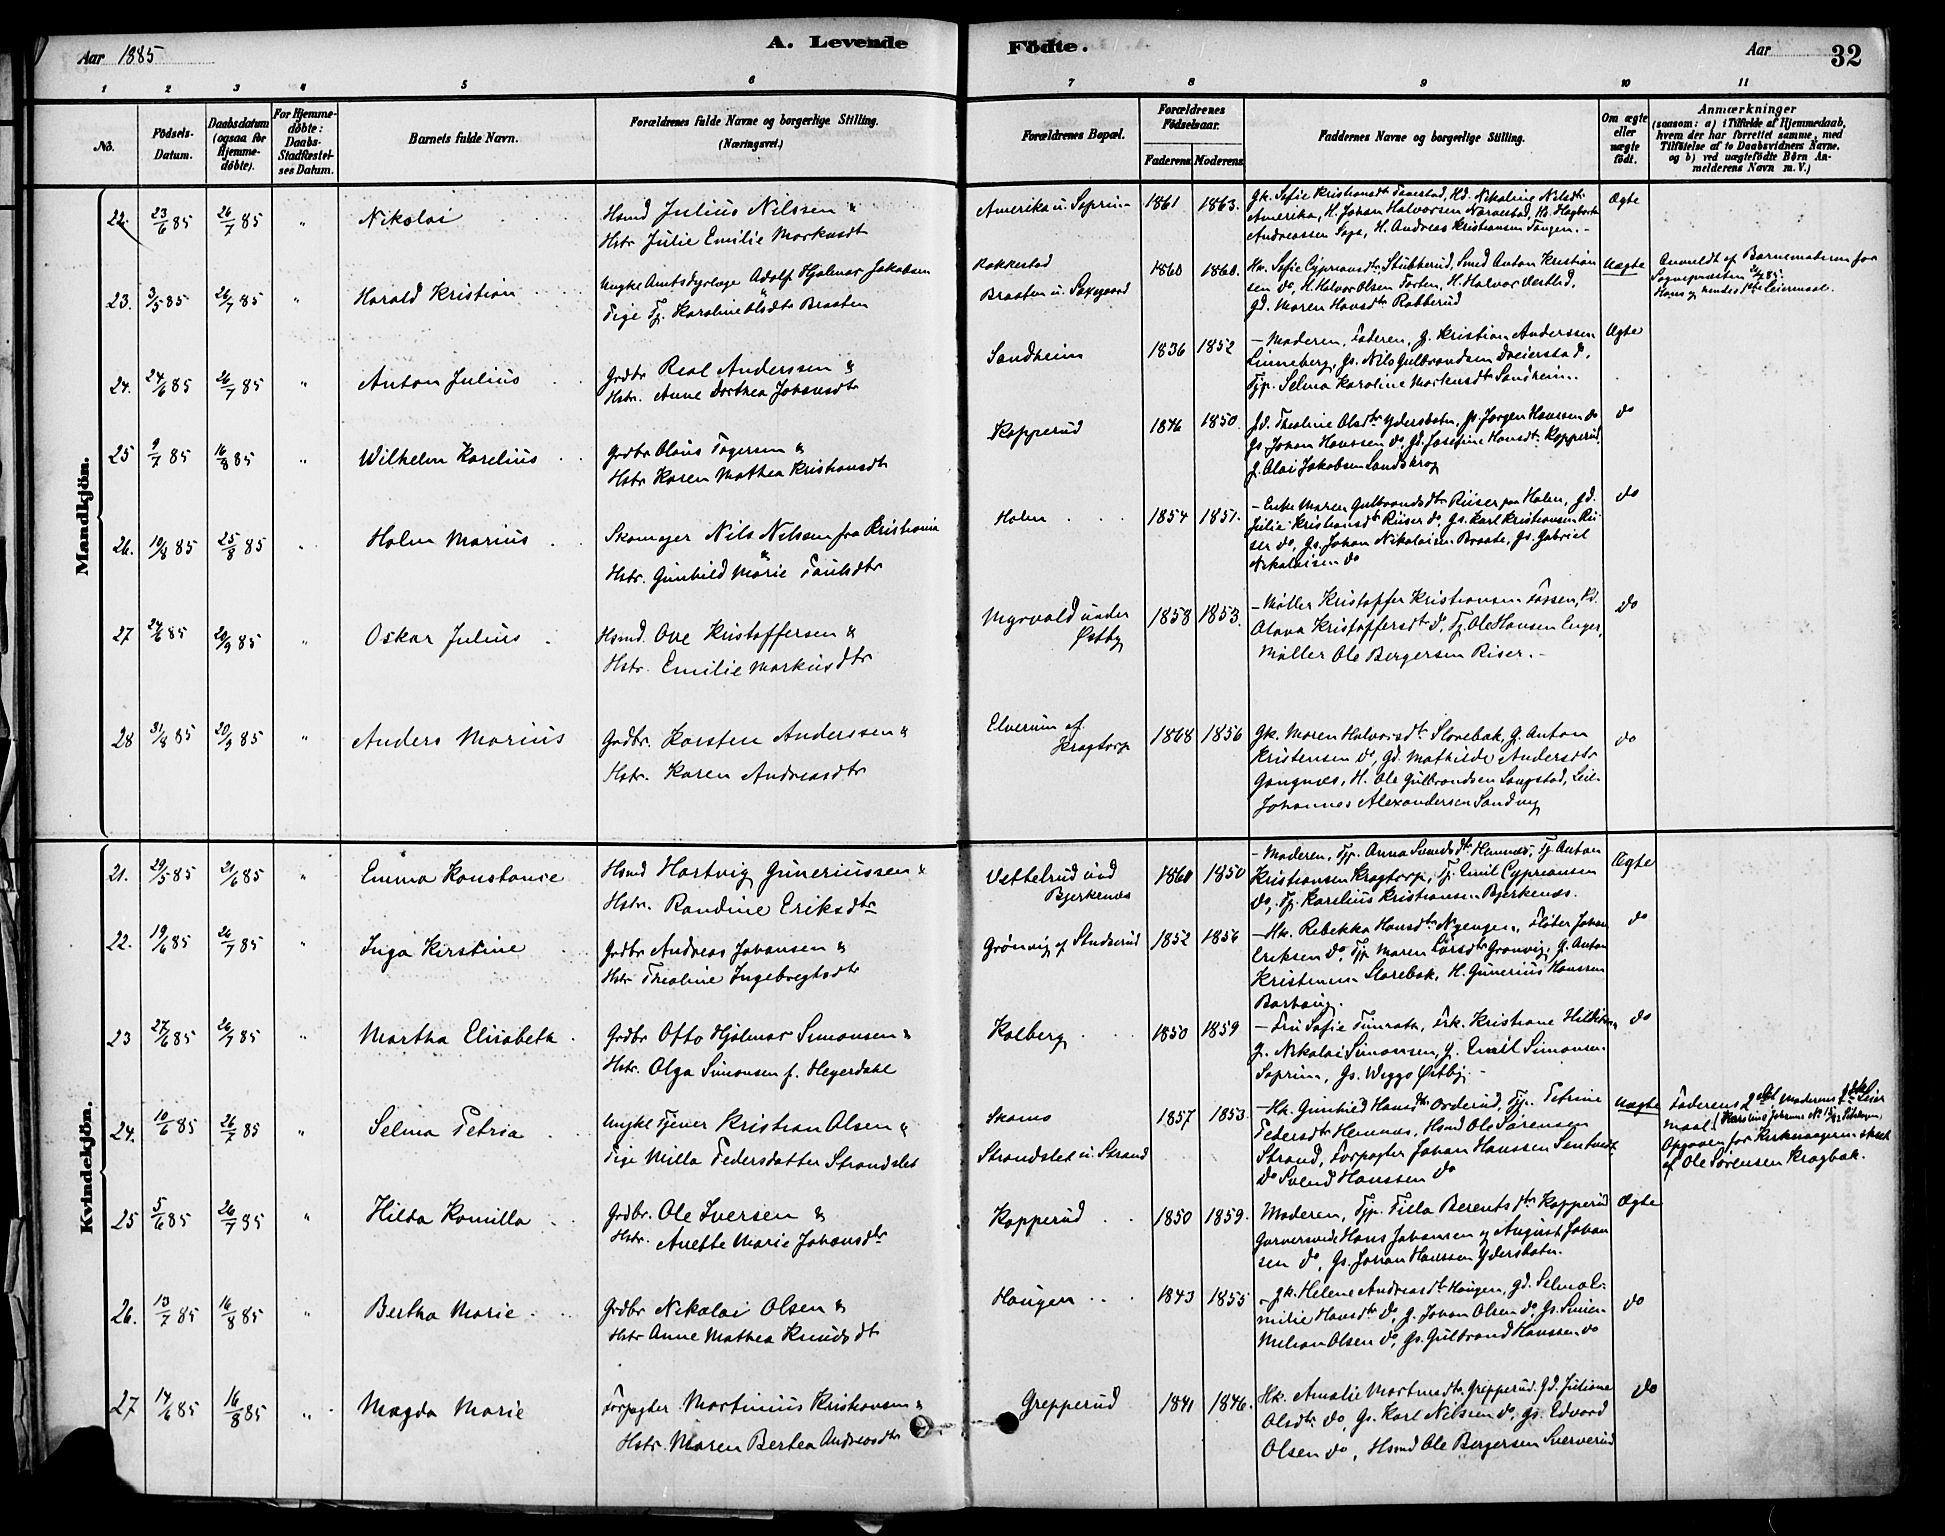 Aar 1885
A. Levende
Fødte.
Aar
32
1 2 3 4 5 6 7 8 9 10 11
No.
Födsels-Datum.
Daabsdatum (ogsaa for Hjemmedöbte).
For Hjemmedöbte: Daabs-Stadfæstelses Datum.
Barnets fulde Navn.
Forældrenes fulde Navne og borgerlige Stilling. (Næringsvei.)
Forældrenes Bopæl.
Forældrenes Födselsaar.
Faderens Moderens
Faddernes Navne og borgerlige Stilling.
Om ægte eller uægte födt.
Anmærkninger
(saasom: a) i Tilfælde af Hjemmedaab, hvem der har forrettet samme, med Tilföielse af to Daabsvidners Navne, og b) ved uægtefödte Börn Anmelderens Navn m. V.)
Mandkjön.
22. 23/6 85 26/7 85 " Nikolai
Hsmd Julius Nilssen &
Hstr Julie Emilie Markusdt
Amerika u. Soprim 1861 1863.
Gk. Sofie Kristiansdt Taaestad, Hd. Nikoline Nilsdt
Amerika, H. Johan Halvorsen Naraestad, Hs. Hagbart
Andreassen Sage, H. Andreas Kristiansen Tangen.
Ægte
23. 3/5 85 26/7 85 " Harald Kristian
Ungke Amtsdyrlæge Adolf Hjalmar Jakobsen
& Pige Tj. Karoline Olsdtr Braaten
Rakkestad
Braaten u. Saxegaard 1860 1860.
Hk. Sofie Cypriansdtr Stubberud, Smed Anton Kristian
sen do, H. Halvor Olsen Torten, H. Halvor Vestled,
Gd. Maren Hansdtr Rabberud
Uægte
Anmeldt af Barnemoderen for
Sognepræsten 26/7 85.
Hans og hendes 1ste Leiermaal.
24. 24/6 85 26/7 85 " Anton Julius
Grdbr Real Anderssen &
Hstr. Anne Dorthea Johansdtr
Sandheim 1836 1852
- Moderen, Faderen, G. Kristian Anderssen
Linneberg, Gs. Nils Gulbrandsen Dreierstad,
Tjp. Selma Karoline Martensdtr Sandheim.
Ægte
25 9/7 85 16/8 85 " Wilhelm Karelius
Grdbr Olaus Fagersen &
Hstr Karen Mathea Kristiansdt
Kopperud 1846 1850
Gd. Theoline Olsdtr Ydersbotn, Gs. Jørgen Hanssen do
Gs. Johan Hanssen do, Gd. Josefine Hansdt Kopperud,
G. Olai Jakobsen Landskrog
do
26. 10/8 85 25/8 85 " Holm Marius
Skomager Nils Nilssen fra Kristiania
& Hstr. Gunhild Marie Paulsdtr
Holm 1854 1851.
- Enke Maren Gulbrandsdtr Riiser paa Holm, Gd.
Julie Kristiansdt Riiser do, Gs. Karl Kristiansen Rii
ser do, Gs. Johan Nikolaisen Braate, Gs. Gabriel
Nikolaisen do
do
27 24/6 85 20/9 85 " Oskar Julius
Hsmd. Ove Kristoffersen &
Hstr. Emilie Markusdtr
Myrvold under
Østby 1858 1853.
- Møller Kristoffer Kristiansen Fossen, Hd.
Olava Kristoffersdt do, Tj. Ole Hansen Enger,
Møller Ole Bergersen Riser.
do
28 31/8 85 20/9 85 " Anders Marius
Grdbr. Karsten Anderssen &
Hstr. Karen Andreasdtr
Elverum af
Kragtorp 1868 1856
Gk. Maren Halvorsdt Slorebak, G. Anton
Kristensen do, Gd. Mathilde Andersdtr
Gangnæs, H. Ole Gulbrandsen Langstad, Leil.
Johannes Alexandersen Sandvig
do
Kvindekjön.
21. 29/5 85 21/6 85 " Emma Konstance
Hsmd Hartvig Guneriussen &
Hstr. Randine Eriksdtr
Vettelrud ved
Bjerkenæs 1860 1850
- Moderen, Tjp. Anna Svendsdt Hemnæs, Tj. Anton
Kristiansen Kragtorp, Tj. Emil Cypriansen
do, Tj. Karelius Kristiansen Bjerkenæs.
Ægte
22. 19/6 85 26/7 85 " Inga Kirstine
Grdbr Andreas Johansen &
Hstr Theoline Ingebregtsdtr
Grønvig af Studserud 1852 1856
- Hk. Rebekka Hansdt Nyenger, Fløter Johan
Eriksen do, Tjp. Maren Larsdtr Grønvig, G. Anton
Kristensen Slorebak, H. Gunerius Hanssen
Borhaug.
do
23 27/6 85 26/7 85 Martha Elisabeth
Grdbr Otto Hjalmar Simonsen &
Hstr. Olga Simonsen f. Heyerdahl
Kolberg 1850 1859
- Fru Sofie Finrata, Frk. Kristiane Hilditen
G. Nikolai Simonsen, G. Emil Simonsen
Soprim, Gs. Wiggo Østby
do
24. 10/6 85 26/7 85 " Selma Petria
Ungke Tjener Kristian Olsen &
Pige Milla Pedersdatter Strandslet
Skams
Strandslet u. Strand 1857 1853
- Hk. Gunhild Hansdtr Orderud, Tjp. Petrine
Pedersdt Hemnæs, Hsmd Ole Sørensen
Strand, Forpagter Johan Hanssen Sentvedt
do Svend Hanssen do
Uægte
Faderens 2det Moderens 2det Leier
maal
Opgaven for Kirkesangeren skeet
af Ole Sørensen Kragbak.
25 5/6 85 26/7 85 " Hilda Kamilla
Grdbr. Ole Iversen &
Hstr. Anette Marie Johansdtr
Kopperud 1850 1859.
Moderen, Tjp. Tilla Berentsdtr Kopperud
Garversvend Hans Johansen og August Johan
sen do, Gs. Johan Hanssen Ydersbotn.
Ægte
26. 13/7 85 16/8 85 " Bertha Marie
Grdbr Nikolai Olsen &
Hstr Anne Mathea Knudsdt
Haugen 1843 1855
- Gk. Helene Andreasdt Haugen, Gd. Selma E-
milie Hansdtr do, G. Johan Olsen do, Gs. Simen
Milian Olsen do, Gs. Gulbrand Hanssen do
do
27 14/6 85 16/8 85 " Magda Marie
Forpagter Martinius Kristiansen &
Hstr. Maren Berthea Andreasdtr
Grepperud 1841 1846.
Hk. Amalie Martinsdtr Gripperud. Gd. Juliane
Olsdtr do, Gs. Karl Nilssen do, Gs. Edvard
Olsen do, Hsmd Ole Bergersen Sververud
do